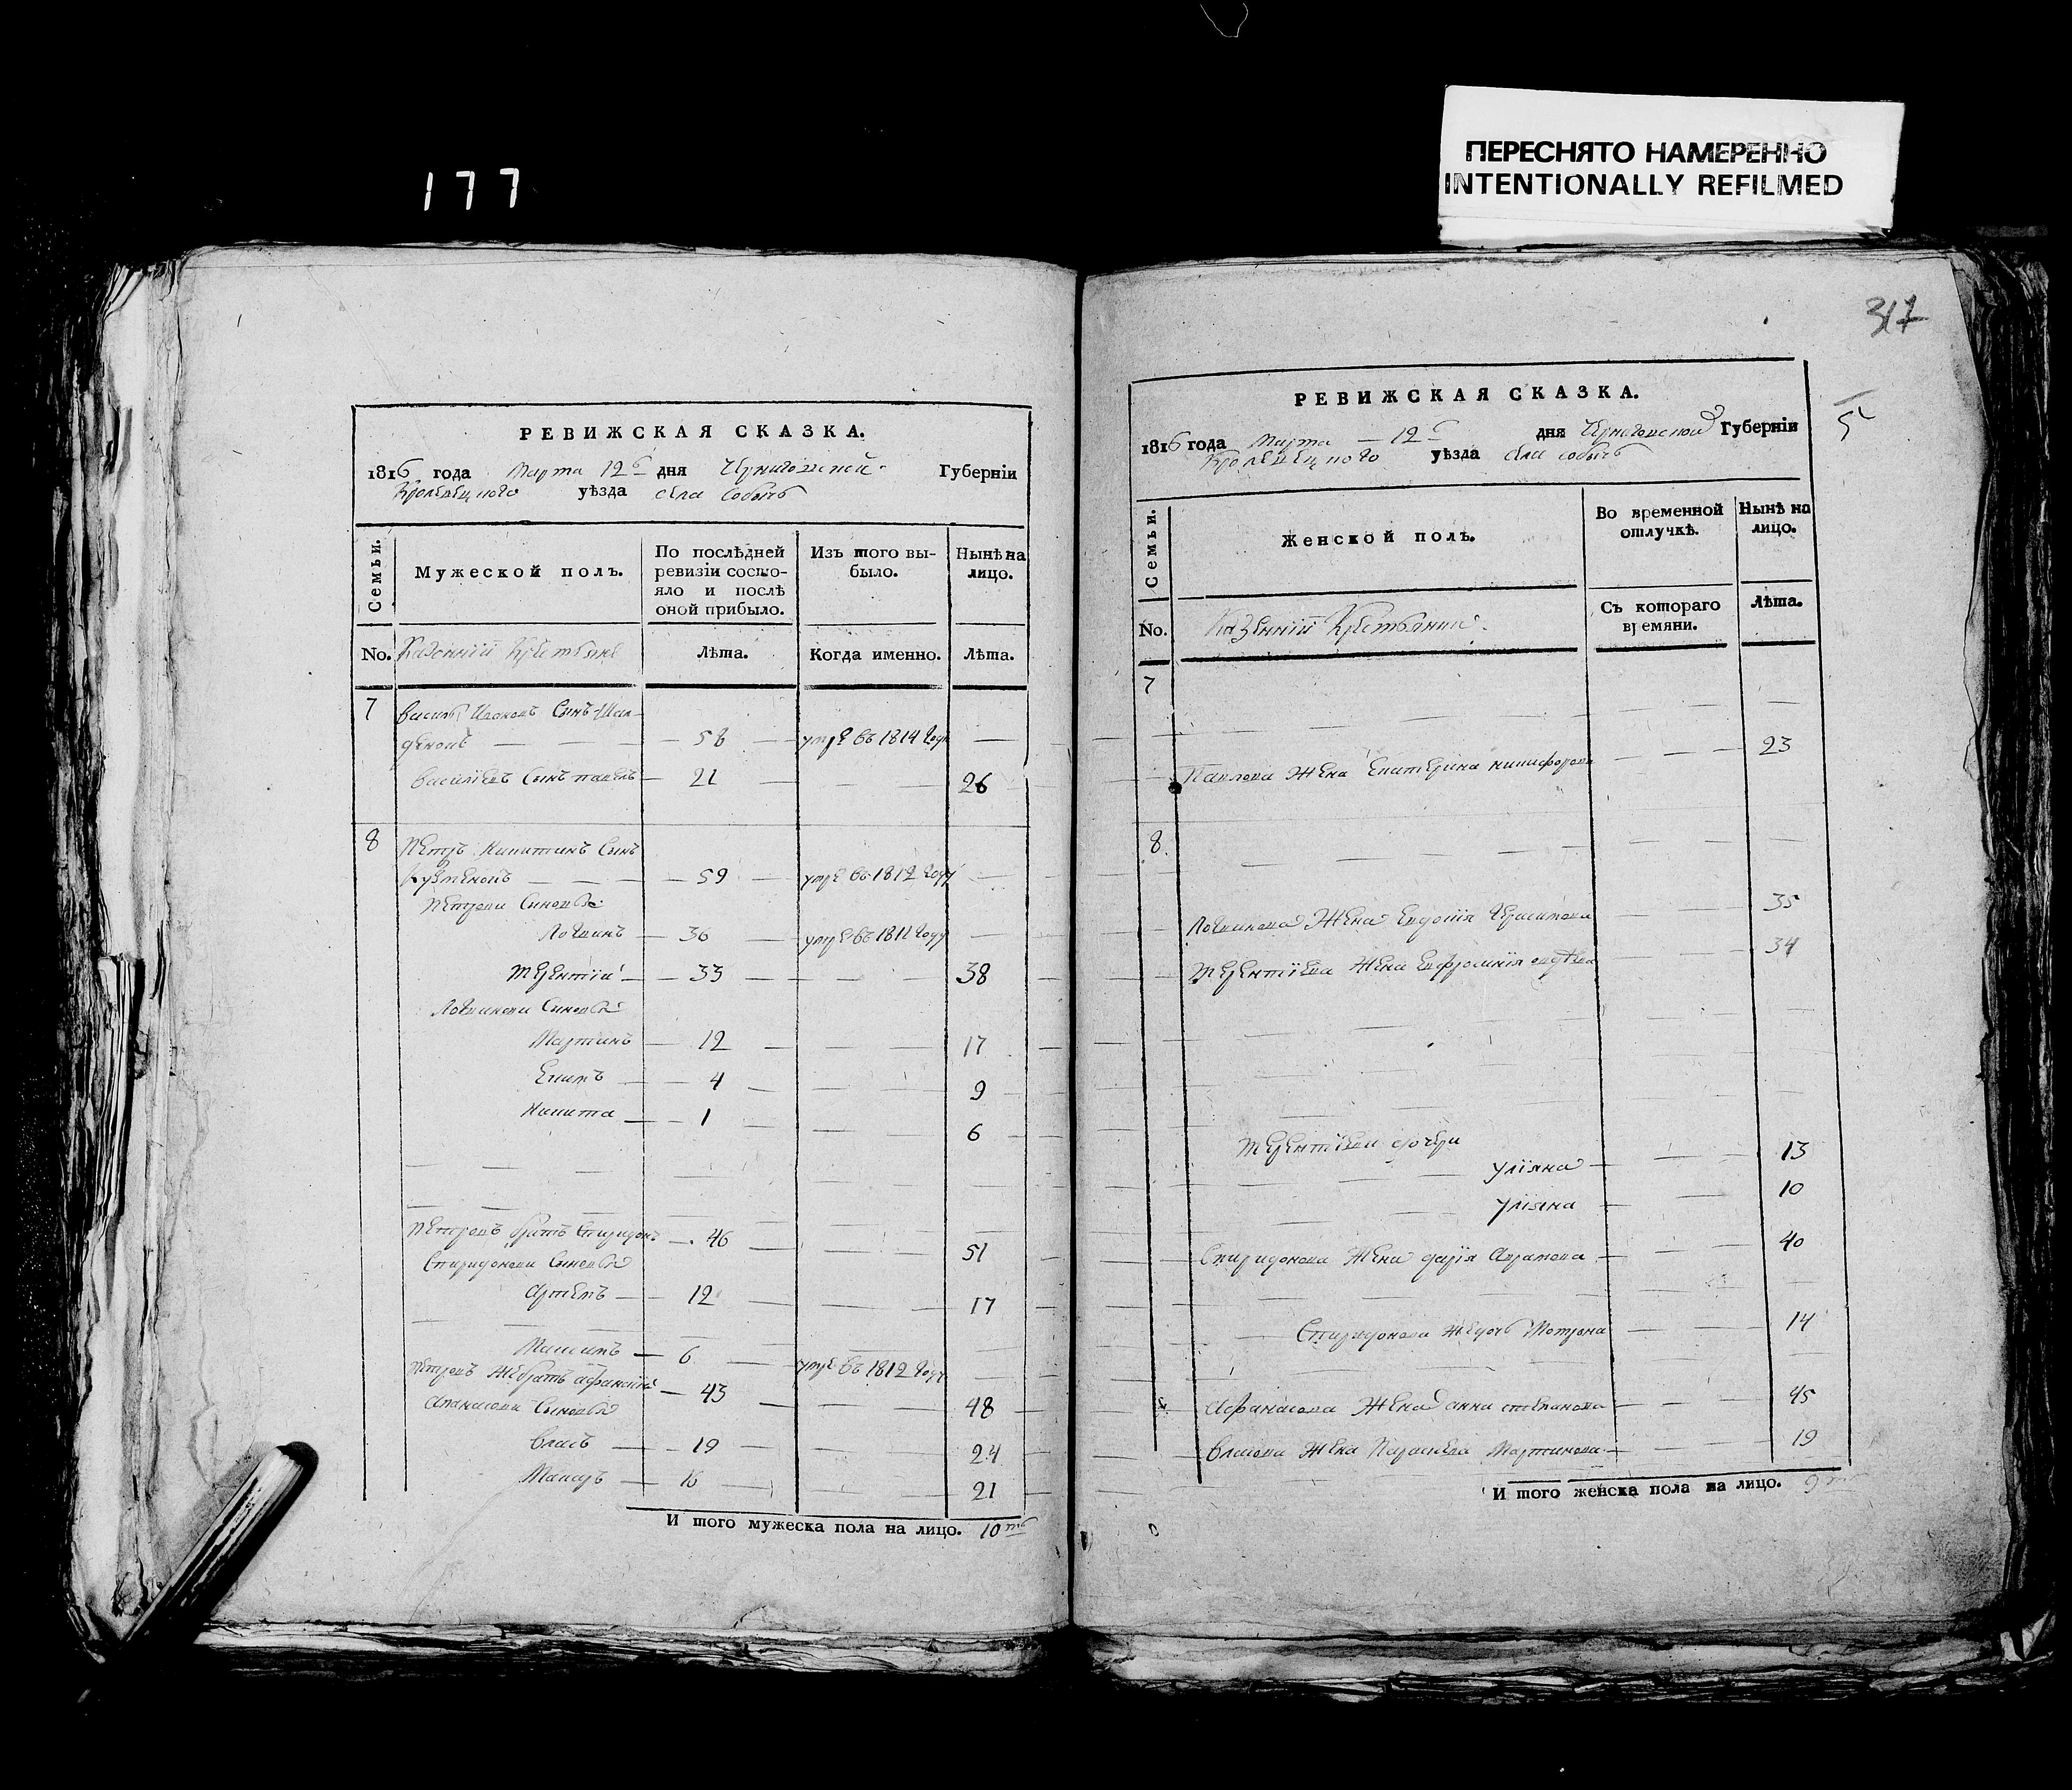 177
ПЕРЕСНЯТО НАМЕРЕННО
INTENTIONALLY REFILMED
РЕВИЖСКАЯ СКАЗКА.
1816 года Марта 12 дня Черниговской Губерніи
Кролевецкого уѣзда села Собычъ
Семьи.
Мужеской полъ.
По послѣдней ревизіи состояло и послѣ оной прибыло.
Изъ того выбыло.
Нынѣ на лицо.
No. Казенніи Крестьяне
Лѣта.
Когда именно.
Лѣта.
7 Василь Ивановъ Сынъ
58 умре въ 1814 Году
Василіевъ Сынъ павелъ 21 26
8 Петръ Никитинъ Сынъ
Кузменокъ 59 умре въ 1812 Году
Петрови Синовья
Логвинъ 36 умре въ 1811 Году
Терентій 33 38
Логвинови Синовья
Мартинъ 12 17
4 9
Никита 1 6
Петровъ братъ Спиридонъ 46 51
Спиридонови Сыновья
Артемъ 12 17
Максимъ 6 умре въ 1812 Году
Петровъ Же братъ афанасій 43 48
Афанасови Сыновья
Власъ 19 24
Макаръ 16 21
И того мужеска пола на лицо. 10ть
317
5
РЕВИЖСКАЯ СКАЗКА.
1816 года Марта 12 дня Черниговской Губерніи
Кролевецкого уѣзда села Собычъ
Семьи.
Женской полъ.
Во временной отлучкѣ.
Нынѣ на лицо.
No. Казенніи Крестьянки
Съ котораго времяни.
Лѣта.
7
Павлова Жена Екатерина никифорова 23
8.
Логвинова Жена Евдокія Герасимова 35
Терентіева Жена Евфросинія 34
Терентіеви дочери
уліяна 13
уліяна 10
Спиридонова Жена дарія Аврамова 40
Спиридонова Же дочь Мотрона 14
Афанасова Жена анна степанова 45
Власова Жена Параскева Мартинова 19
И того женска пола на лицо. 9ть